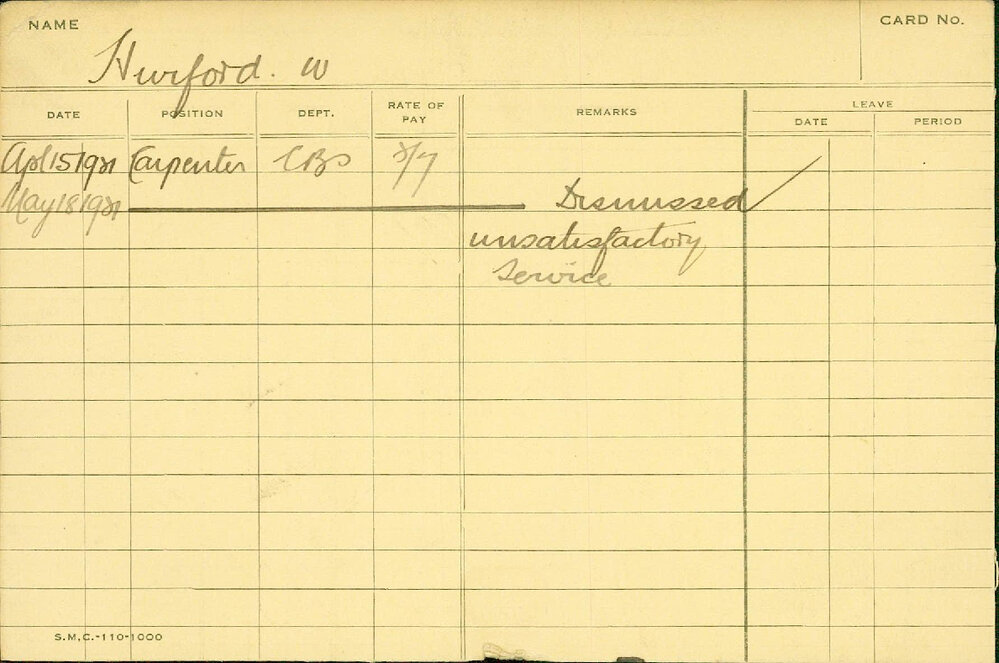 NAME
CARD No.
Hurford. W
DATE POSITION DEPT. RATE OF PAY REMARKS LEAVE
DATE PERIOD
Apl 15 1921 Carpenter CBS 2/7
May 18 1921 Dismissed
unsatisfactory
Service
S.M.C.-110-1000